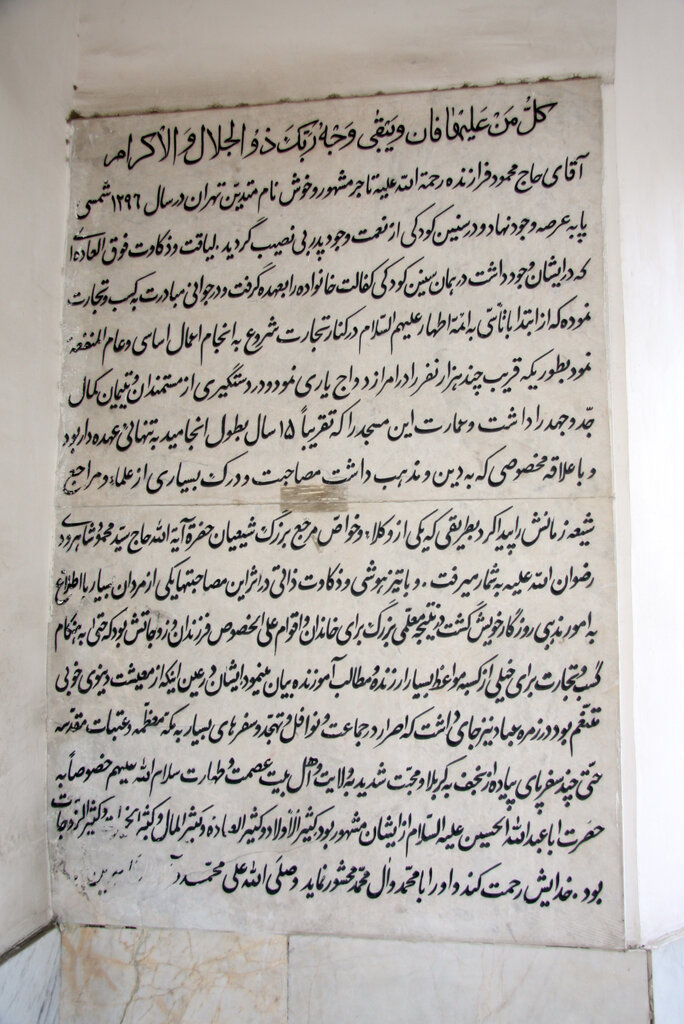 كلُّ مَنْ عَلَيْهٰا فٰان وَيَبْقٰى وَجْهُ رَبِّكَ ذُو الْجَلٰالِ وَالْاِكْرٰام
آقای حاج محمود فرازنده رحمة الله علیه تاجر مشهور و خوش نام متدیّن تهران در سال ۱۲۹۶ شمسی
پا به عرصه وجود نهاد و در سنین کودکی از نعمت وجود پدر بی نصیب گردید . لیاقت و ذکاوت فوق العاده‌ای
که در ایشان وجود داشت در همان سنین کودکی کفالت خانواده را بعهده گرفت و در جوانی مبادرت به کسب و تجارت
نموده که از ابتدا با تأسّی به ائمّه اطهار علیهم السّلام در کنار تجارت شروع به انجام اعمال اساسی و عام المنفعه
نمود بطوریکه قریب چند هزار نفر را در امر ازدواج یاری نمود و در دستگیری از مستمندان و یتیمان کمال
جدّ و جهد را داشت و عمارت این مسجد را که تقریباً ۱۵ سال بطول انجامید به تنهائی عهده دار بود
و با علاقه مخصوصی که به دین و مذهب داشت مصاحبت و درک بسیاری از علماء و مراجع
شیعه زمانش را پیدا کرد بطریقی که یکی از وکلاء و خواصّ مرجع بزرگ شیعیان حضرة آیة الله حاج سیّد محمود شاهرودی
رضوان الله علیه به شمار میرفت . و با تیز هوشی و ذکاوت ذاتی در اثر این مصاحبتها یکی از مردان بسیار با اطلاع
به امور مذهبی روزگار خویش گشت در نتیجه معلّمی بزرگ برای خاندان و اقوام علی الخصوص فرزندان و زوجاتش بود که حتی به هنگام
کسب و تجارت برای خیلی از کسبه مواعظ بسیار ارزنده و مطالب آموزنده بیان مینمود ایشان در عین اینکه از معیشت دنیوی خوبی
متنعّم بود در زمره عباد نیز جای داشت که اصرار در جماعت و نوافل و تهجّد و سفرهای بسیار به مکّه معظّمه و عتبات مقدّسه
حتّی چند سفر پای پیاده از نجف به کربلا و محبّت شدید به ولایت و اهل بیت عصمت و طهارت سلام الله علیهم خصوصاً به
حضرت ابا عبدالله الحسین علیه السّلام از ایشان مشهور بود کثیر الأولاد و کثیر العباده و کثیر المال و کثیر و کثیر الزّوجات
بود . خدایش رحمت کند و او را با محمّد و آل محمّد محشور نماید و صلّی الله علی محمّد